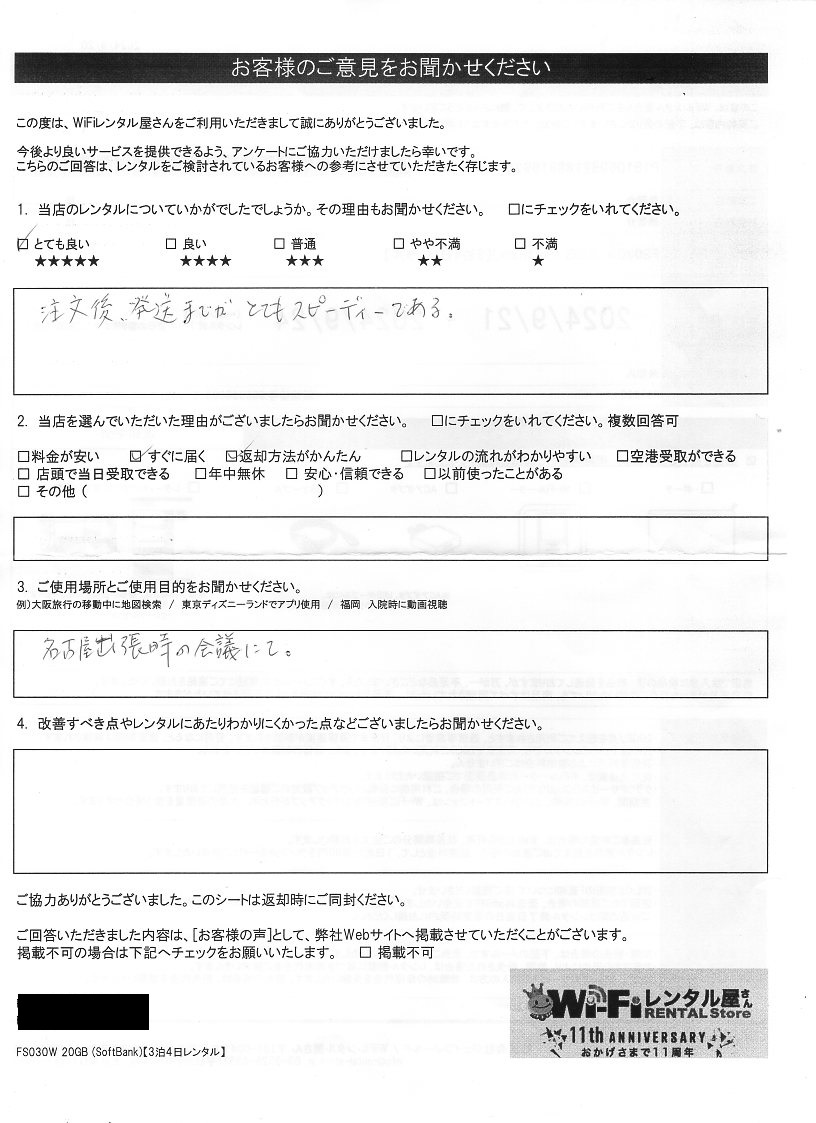 お客様のご意見をお聞かせください
この度は、WiFiレンタル屋さんをご利用いただきまして誠にありがとうございました。
今後より良いサービスを提供できるよう、アンケートにご協力いただけましたら幸いです。
こちらのご回答は、レンタルをご検討されているお客様への参考にさせていただきたく存じます。
1. 当店のレンタルについていかがでしたでしょうか。その理由もお聞かせください。 □にチェックをいれてください。
☑ とても良い □ 良い □ 普通 □ やや不満 □ 不満
★★★★★ ★★★★ ★★★ ★★ ★
注文後、発送までが とてもスピーディーである。
2. 当店を選んでいただいた理由がございましたらお聞かせください。 □にチェックをいれてください。複数回答可
□料金が安い ☑ すぐに届く ☑返却方法がかんたん □レンタルの流れがわかりやすい □空港受取ができる
□ 店頭で当日受取できる □年中無休 □ 安心・信頼できる □以前使ったことがある
□ その他 ( )
3. ご使用場所とご使用目的をお聞かせください。
例)大阪旅行の移動中に地図検索 / 東京ディズニーランドでアプリ使用 / 福岡 入院時に動画視聴
名古屋出張時の会議にて。
4. 改善すべき点やレンタルにあたりわかりにくかった点などございましたらお聞かせください。
ご協力ありがとうございました。このシートは返却時にご同封ください。
ご回答いただきました内容は、[お客様の声]として、弊社Webサイトへ掲載させていただくことがございます。
掲載不可の場合は下記へチェックをお願いいたします。 □ 掲載不可
Wi-Fiレンタル屋さん
RENTAL Store
11th ANNIVERSARY
おかげさまで11周年
FS030W 20GB (SoftBank)【3泊4日レンタル】